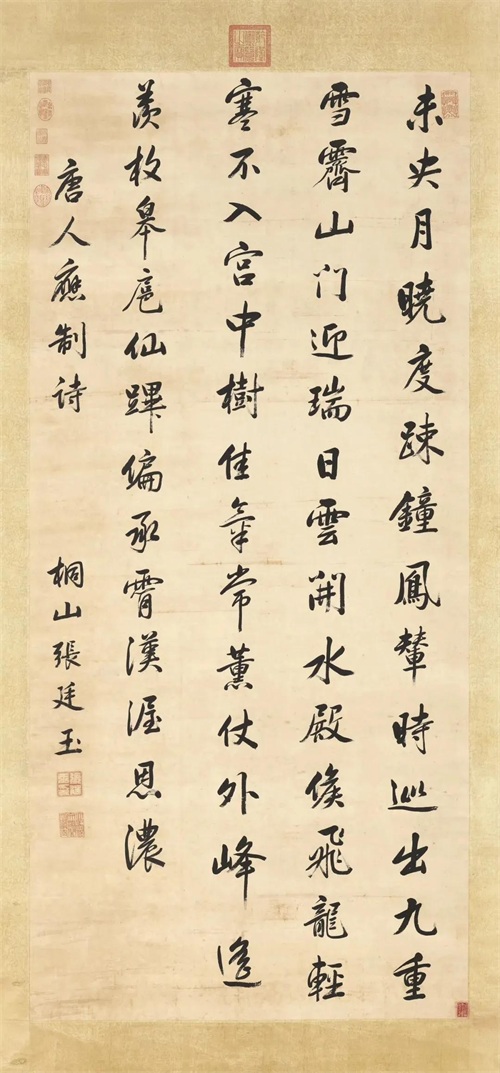 未央月曉度疎鐘鳳輦時巡出九重
雪霽山门迎瑞日雲開水殿候飛龍輕
寒不入宮中樹佳氣常薰仗外峰遙
羨枚皋扈仙蹕偏承霄漢渥恩濃
唐人應制诗
桐山張廷玉